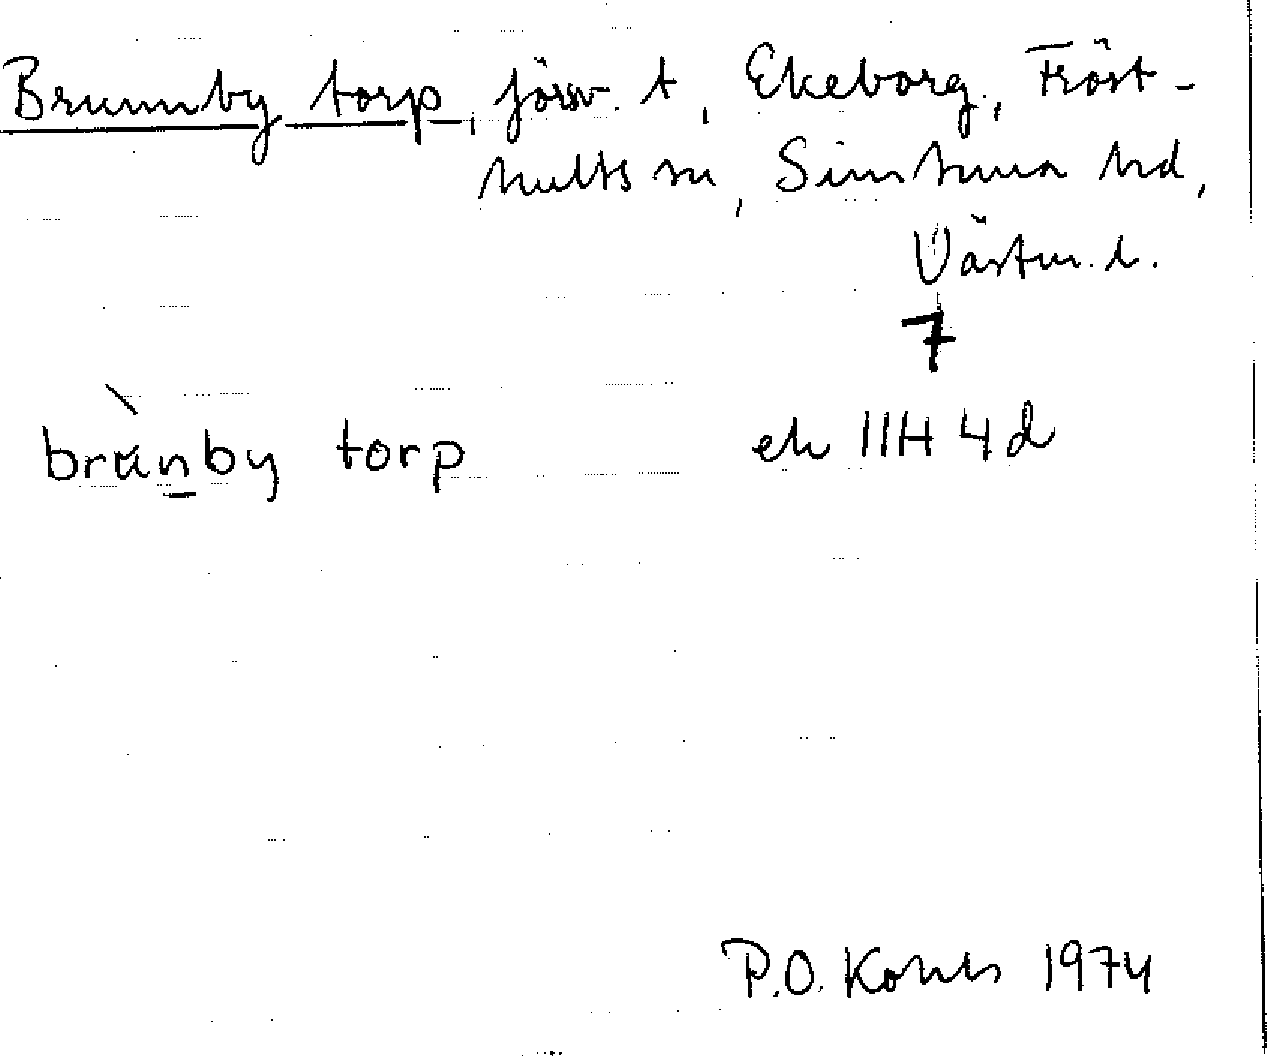 Brunnby torp, försv. t, Ekeborg, Fröst-
hults sn, Simtuna hd,
Västm. l.
7
brunby torp ek 11H 4d
P.O. 1974